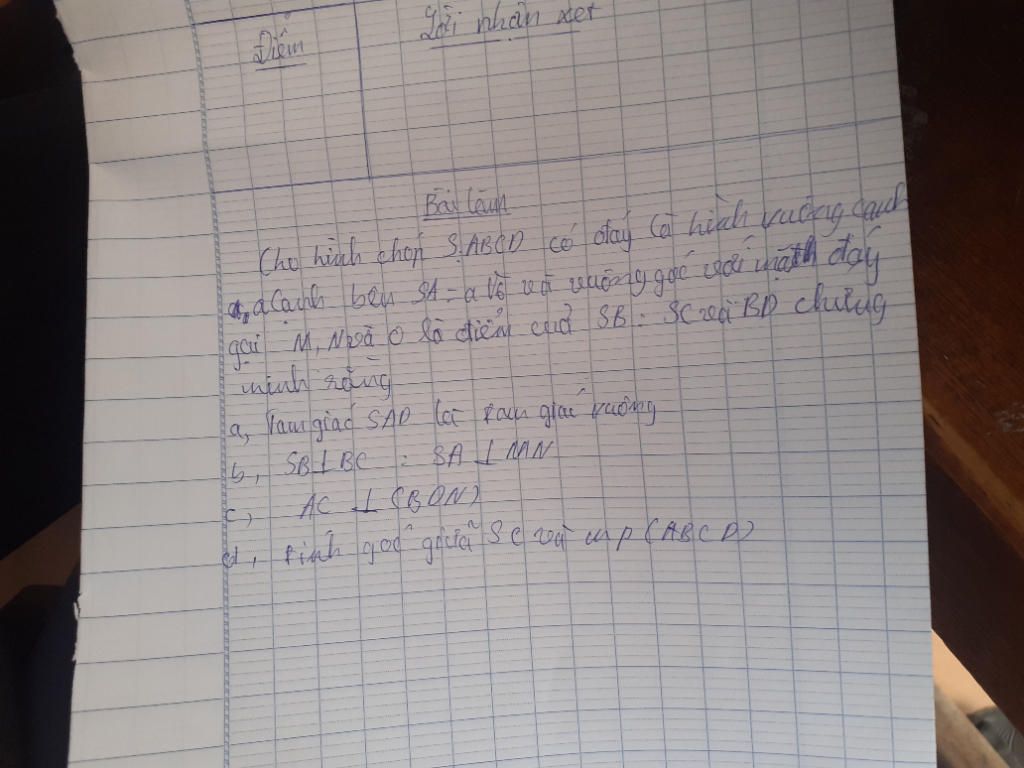 Điểm
Lời nhận xét
Bài làm
Cho hình chóp S.ABCD có đáy là hình vuông cạnh
a, cạnh bên SA = a và vuông góc với mặt đáy
gọi M, N và O là điểm của SB ; SC và BD chứng
minh rằng
a, Tam giác SAD là tam giác vuông
b, SB ⊥ BC ; SA ⊥ MN
c, AC ⊥ (BON)
d, tính góc giữa SC và mp (ABCD)